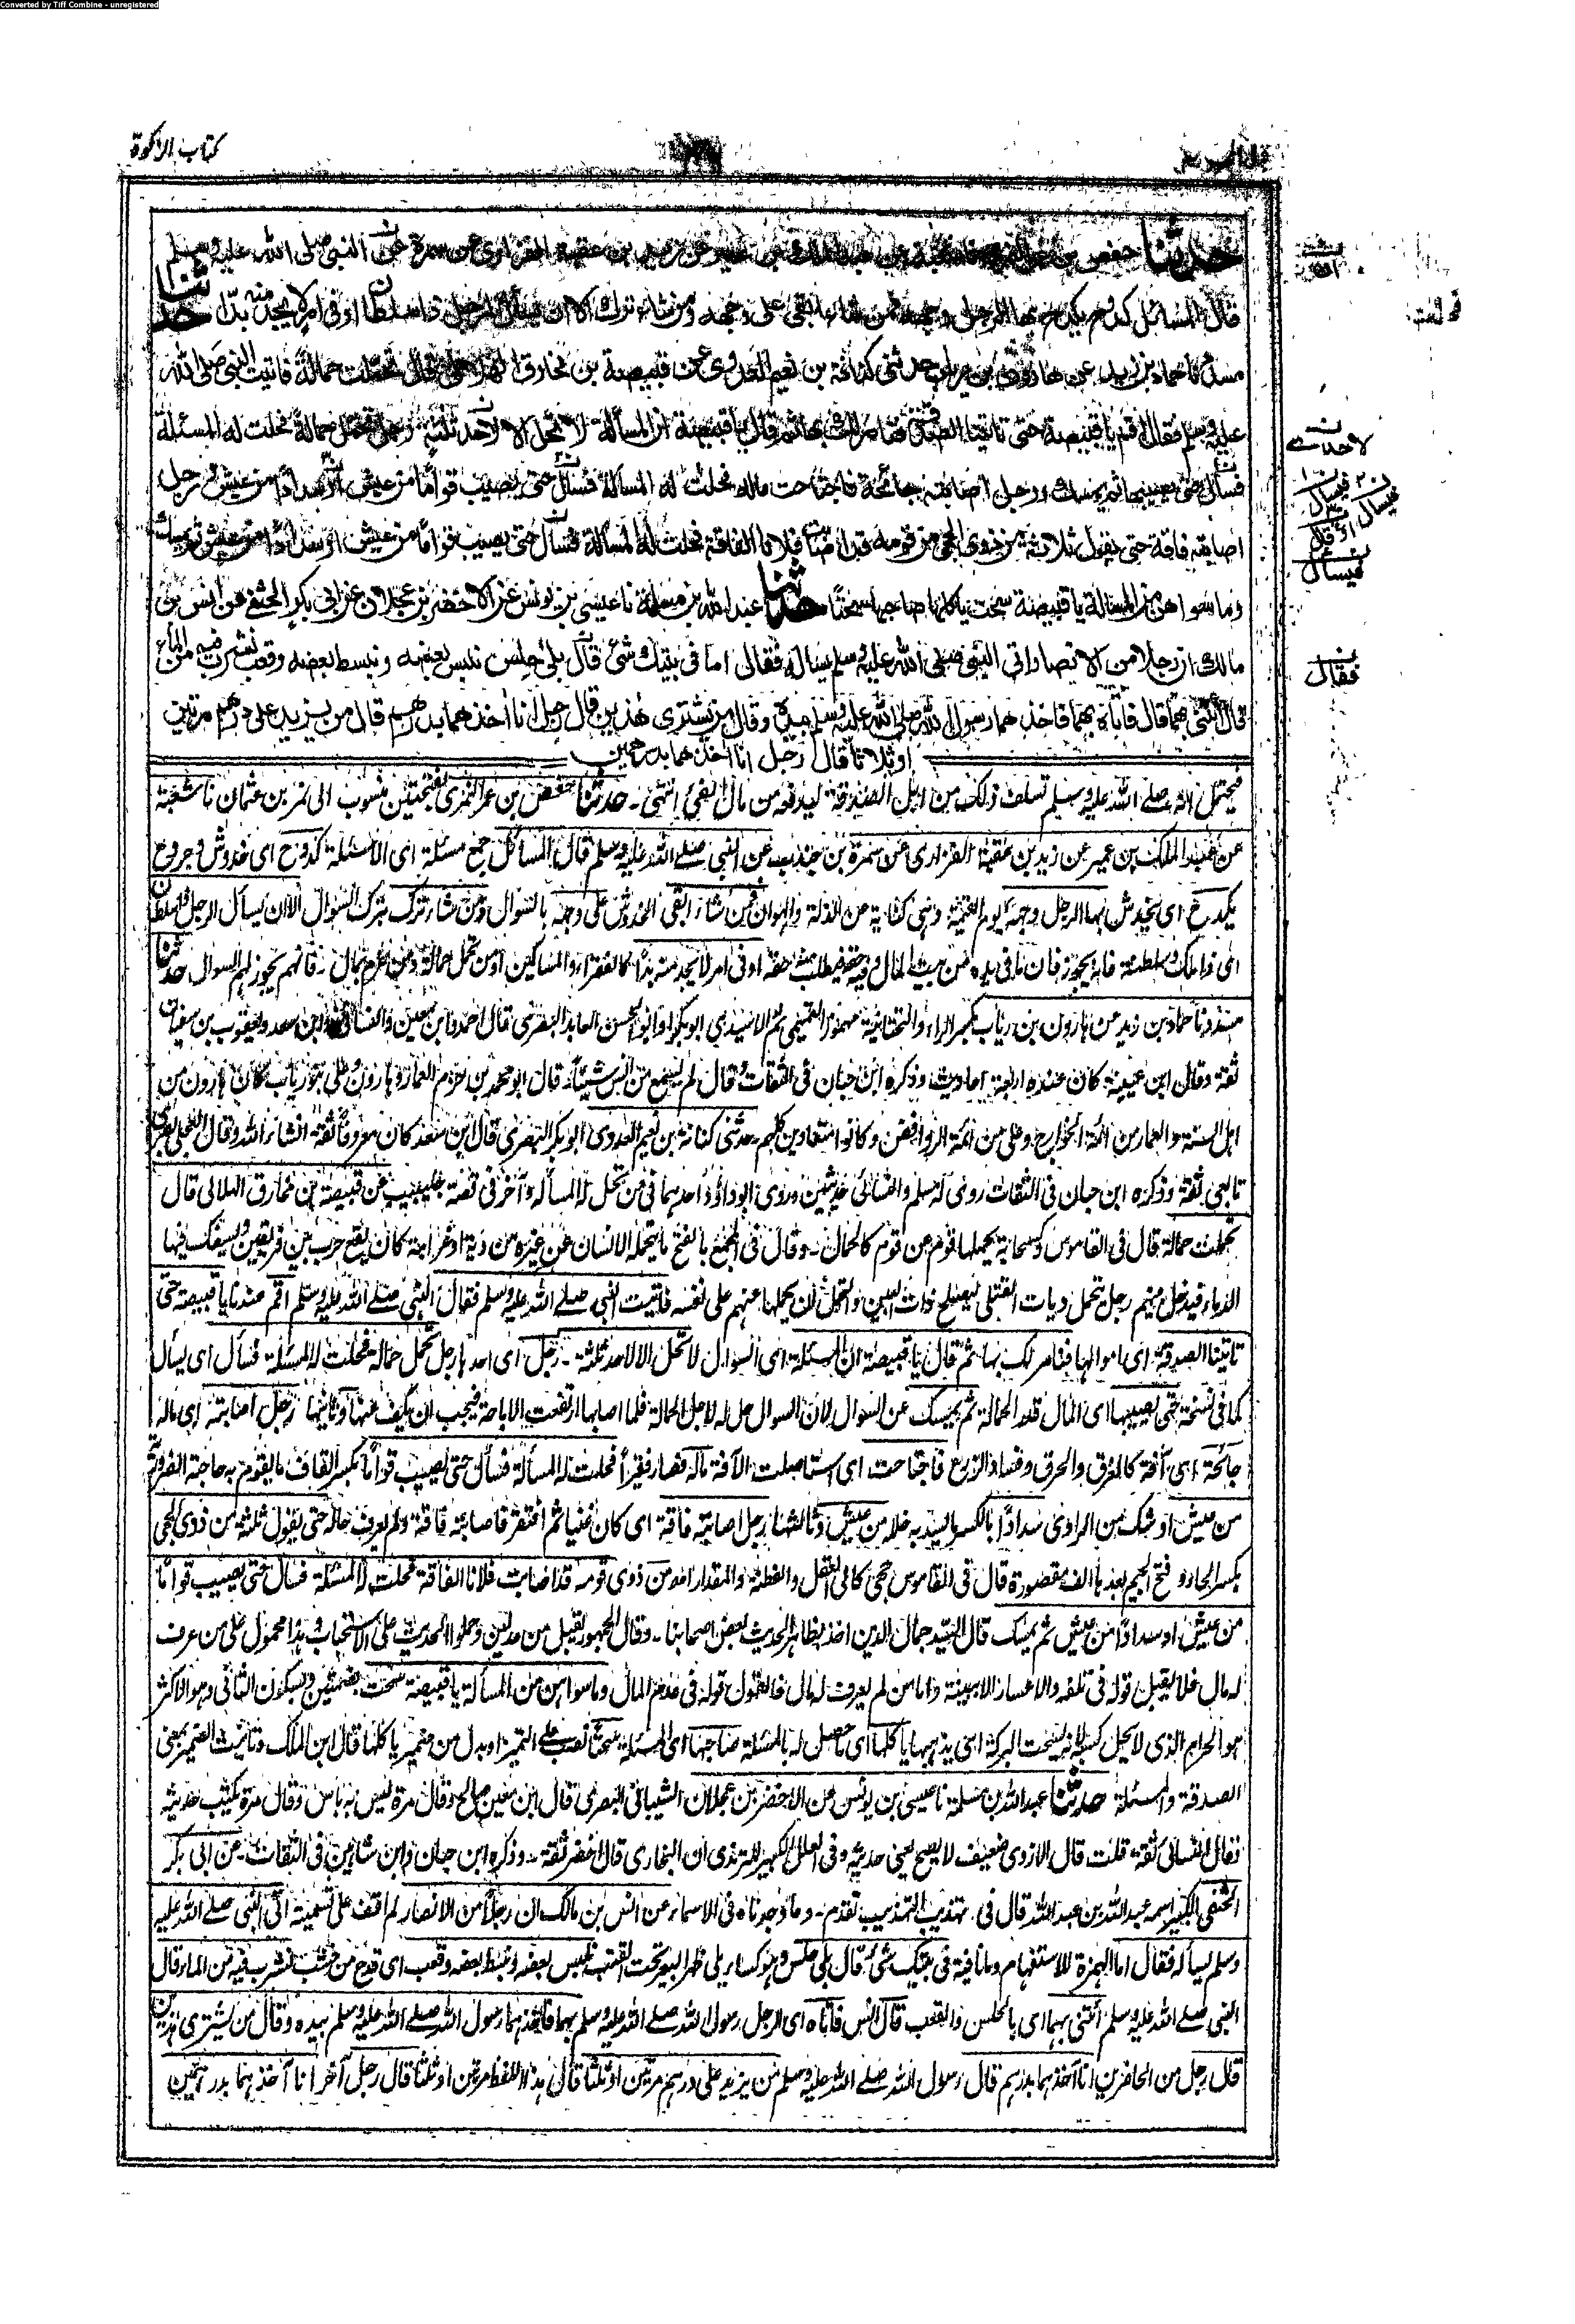 Converted by Tiff Combine - unregistered
كتاب الزكوة
حدثنا حفص بن عمر عن زيد بن عقبة الفزاري عن سمرة عن النبي صلى الله عليه وسلم
قال المسائل كدوح يكدح بها الرجل وجهه فمن شاء ابقى على وجهه ومن شاء ترك الا ان يسأل الرجل ذا سلطان او في امر لا يجد منه بدّا حدثنا
مسدد نا حماد بن زيد عن هارون بن رياب حدثنى كنانة بن نعيم العدوى عن قبيصة بن مخارق الهلالى قال تحملت حمالة فاتيت النبى صلى الله
عليه وسلم فقال اقم يا قبيصة حتى تاتينا الصدقة فنامر لك بها ثم قال يا قبيصة ان المسألة لا تحل الا لاحد ثلثة رجل تحمل حمالة فحلت له المسئلة
فسأل حتى يصيبها ثم يمسك ورجل اصابته جائحة فاجتاحت ماله فحلت له المسألة فسأل حتى يصيب قواما من عيش او سدادا من عيش ورجل
اصابته فاقة حتى يقول ثلاثة من ذوى الحجى من قومه قد اصابت فلانا الفاقة فحلت له المسألة فسأل حتى يصيب قواما من عيش او سدادا من عيش ثم يمسك
وما سواهن من المسألة يا قبيصة سحت ياكلها صاحبها سحتا حدثنا عبد الله بن مسلمة نا عيسى بن يونس عن الاخضر بن عجلان عن ابى بكر الحنفى عن انس بن
مالك ان رجلا من الانصار اتى النبى صلى الله عليه وسلم يسأله فقال اما فى بيتك شئ قال بلى حلس نلبس بعضه ونبسط بعضه وقعب نشرب فيه من الماء
قال ائتنى بهما قال فاتاه بهما فاخذهما رسول الله صلى الله عليه وسلم بيده وقال من يشترى هذين قال رجل انا اخذهما بدرهم قال من يزيد على درهم مرتين
او ثلاثا قال رجل انا اخذهما بدرهمين
لاحدى
فيسأل
فيسأل
او قال
فيسأل
فقال
فيحتمل انه صلے الله عليه وسلم تسلف ذلك من ابل الصدقة ليدفعه من مال الفئ انتهى ۔ حدثنا حفص بن عمر النمرى بفتحتين منسوب الى نمر بن عثمان نا شعبة
عن عبد الملك بن عمير عن زيد بن عقبة الفزارى عن سمرة بن جندب عن النبي صلے الله عليه وسلم قال المسائل جمع مسئلة اى الاسئلة كدوح اى خدوش وجروح
يكدح اى يخدش بها الرجل وجهه يوم القيمة وهى كناية عن الذلة والهوان فمن شاء ابقى الخدوش على وجهه بالسوال ومن شاء ترك بترك السوال الا ان يسأل الرجل ذا سلطان
اى ذا ملك وسلطنة فانه يجوز فان ما فى يده من بيت المال وفيه حقه فيطلب منه حقه او فى امر لا يجد منه بدا كالفقراء والمساكين او من تحمل حمالة ومن غرم بمال ۔ فانهم يجوز لهم السوال حدثنا
مسدد نا حماد بن زيد عن هارون بن رياب بكسر الراء والتحتانية مهموز التميمى ثم الاسيدى ابو بكر او ابو الحسن العابد البصرى قال احمد وابن معين والنسائى وابن سعد ويعقوب بن سفيان
ثقة وقال ابن عيينة كان عنده اربعة احاديث وذكره ابن حبان فى الثقات وقال لم يسمع من انس شيئا ۔ قال ابو محمد بن حزم اليمان وهارون وعلى بنو رياب كان هارون من
اهل السنة واليمان من ائمة الخوارج وعلى من ائمة الروافض وكانوا متعادين كلهم ۔ حدثنى كنانة بن نعيم العدوى ابو بكر البصرى قال ابن سعد كان معروفا ثقة انشاء الله وقال العجلى بصرى
تابعى ثقة وذكره ابن حبان فى الثقات روى له مسلم والنسائى حديثين وروى ابو داؤد احدهما فى من تحل له المسألة وآخر فى قصة جليبيب عن قبيصة بن مخارق الهلالى قال
تحملت حمالة قال فى القاموس وكسحابة يحملها قوم عن قوم كالحمال ۔ وقال فى المجمع بالفتح ما يتحمله الانسان عن غيره من دية او غرامة كان يقع حرب بين فريقين ويسفك فيها
الدماء فيدخل بينهم رجل يتحمل ديات القتلى ليصلح ذات البين والتحمل ان يحملها عنهم على نفسه فاتيت النبى صلے الله عليه وسلم فقال النبى صلے الله عليه وسلم اقم عندنا يا قبيصة حتى
تاتينا الصدقة اى اموالها فنامر لك بها ثم قال يا قبيصة ان المسئلة اى السوال لا تحل الا لاحد ثلثة ۔ رجل اى احدها رجل تحمل حمالة فحلت له المسئلة فسأل اى يسأل
كما فى نسخة حتى يصيبها اى المال قدر الحمالة ثم يمسك عن السوال لان السوال حل له لاجل الحمالة فلما اصابها ارتفعت الاباحة فيجب ان يكف عنها وثانيها رجل اصابته اى ماله
جائحة اى آفة كالغرق والحرق وفساد الزرع فاجتاحت اى استاصلت الآفة ماله فصار فقيرا فحلت له المسألة فسأل حتى يصيب قواما بكسر القاف ما يقوم به حاجته الضرورية
من عيش او شك من الراوى سدادا بالكسر ما يسد به خلله من عيش وثالثها رجل اصابته فاقة اى كان غنيا ثم افتقر فاصابته فاقة ولم يعرف حاله حتى يقول ثلثة من ذوى الحجى
بكسر الحاء وفتح الجيم بعدها الف مقصورة قال فى القاموس حجى كالى العقل والفطنة والمقدار اه من ذوى قومه قد اصابت فلانا الفاقة فحلت له المسئلة فسأل حتى يصيب قواما
من عيش او سدادا من عيش ثم يمسك قال السيد جمال الدين اخذ بظاهر الحديث بعض اصحابنا ۔ وقال الجمهور يقبل من عدلين وحملوا الحديث على الاستحباب وهذا محمول على من عرف
له مال فلا يقبل قوله فى تلفه والاعسار الا ببينة واما من لم يعرف له مال فالقول قوله فى عدم المال وما سواهن من المسألة يا قبيصة سحت بضمتين وبسكون الثانى وهو الاكثر
هو الحرام الذى لا يحل كسبه لانه يسحت البركة اى يذهبها ياكلها اى ما حصل له بالمسئلة صاحبها اى المسئلة سحتا نصب على التميز او بدل من ضمير ياكلها قال ابن الملك وتانيث الضمير بمعنى
الصدقة والمسئلة حدثنا عبد الله بن مسلمة نا عيسى بن يونس عن الاخضر بن عجلان الشيبانى البصرى قال ابن معين صالح وقال مرة ليس به باس وقال مرة يكتب حديثه
وقال النسائى ثقة قلت قال الازدى ضعيف لا يصح يعنى حديثه وفى العلل الكبير للترمذى ان البخارى قال اخضر ثقة ۔ وذكره ابن حبان وابن شاهين فى الثقات ۔ عن ابى بكر
الحنفى الكبير اسمه عبد الله بن عبد الله قال فى تهذيب التهذيب تقدم ۔ وما وجدناه فى الاسماء عن انس بن مالك ان رجلا من الانصار لم اقف على تسميته اتى النبى صلے الله عليه
وسلم يسأله فقال اما الهمزة للاستفهام وما نافية فى بيتك شئ قال بلى حلس وهو كساء يلى ظهر البعير تحت القتب نلبس بعضه ونبسط بعضه وقعب اى قدح من خشب نشرب فيه من الماء قال
النبى صلے الله عليه وسلم ائتنى بهما اى بالحلس والقعب قال انس فاتاه اى الرجل رسول الله صلے الله عليه وسلم بهما فاخذهما رسول الله صلے الله عليه وسلم بيده وقال من يشترى هذين
قال رجل من الحاضرين انا آخذهما بدرهم قال رسول الله صلے الله عليه وسلم من يزيد على درهم مرتين او ثلثا قال هذا اللفظ مرتين او ثلثا قال رجل آخر انا آخذهما بدرهمين